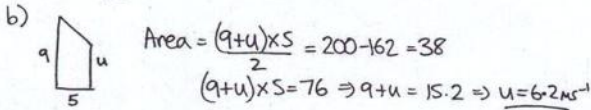 b)
9 u
5
Area = (9+u)×5/2 = 200-162 = 38
(9+u)×5=76 ⇒ 9+u = 15.2 ⇒ u=6.2ms⁻¹